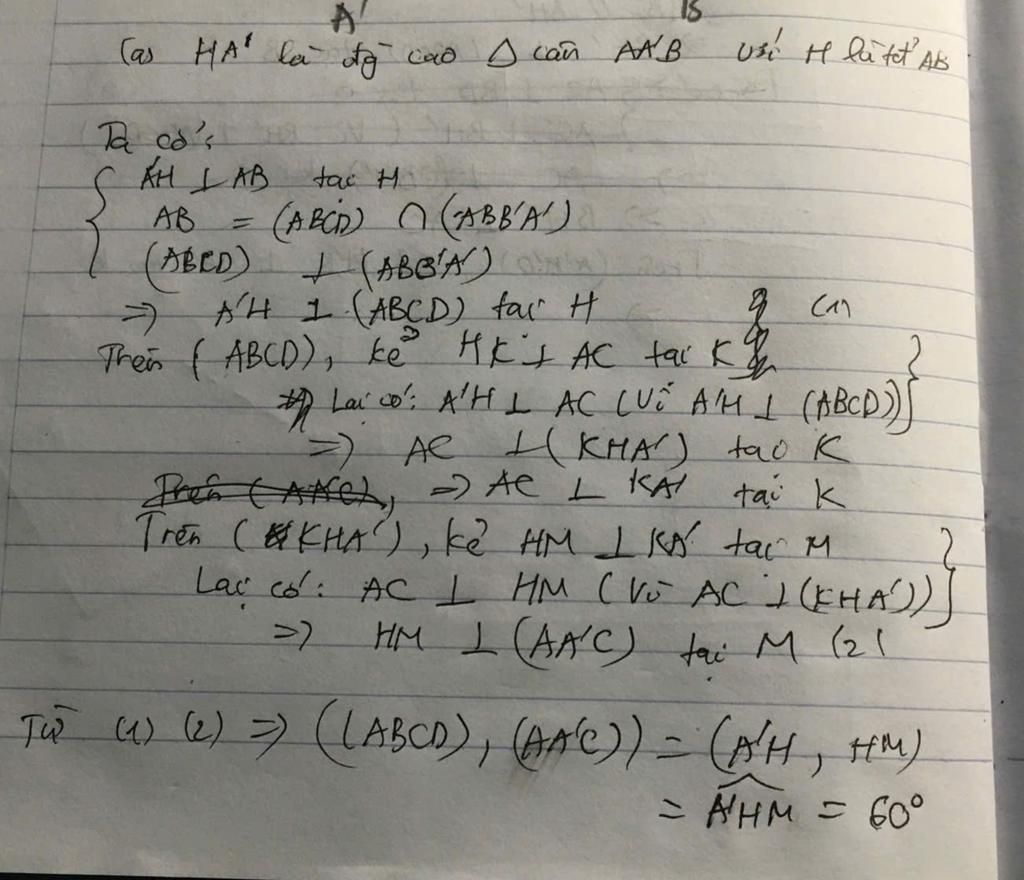 A' B
Gọi HA' là đg cao Δ cân AA'B với H là tđ AB
Ta có:
A'H ⊥ AB tại H
AB = (ABCD) ∩ (ABB'A')
(ABCD) ⊥ (ABB'A')
=> A'H ⊥ (ABCD) tại H (1)
Trên (ABCD), kẻ HK ⊥ AC tại K
Lại có: A'H ⊥ AC (Vì A'H ⊥ (ABCD))
=> AC ⊥ (KHA') tại K
=> AC ⊥ KA' tại K
Trên (KHA'), kẻ HM ⊥ KA' tại M
Lại có: AC ⊥ HM (Vì AC ⊥ (KHA'))
=> HM ⊥ (AA'C) tại M (2)
Từ (1) (2) => ((ABCD), (AA'C)) = (A'H, HM)
= A'HM = 60°